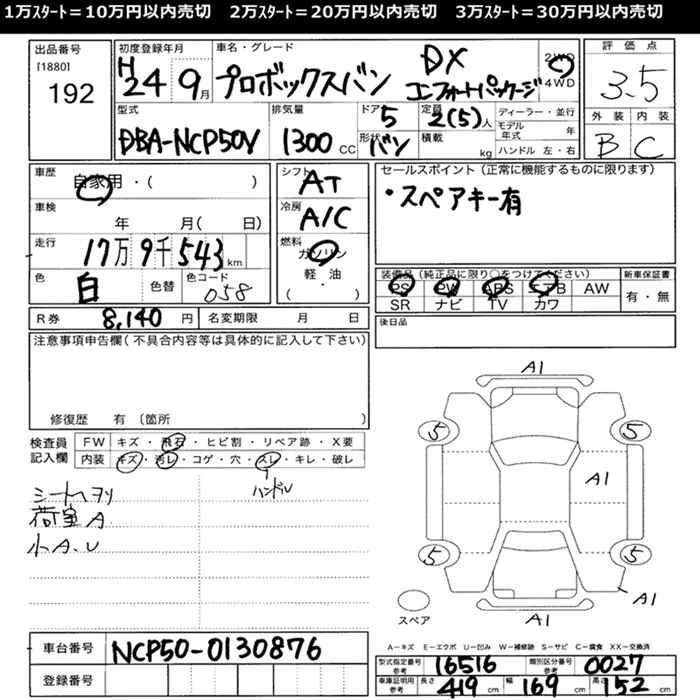 1万スタート＝10万円以内売切　2万スタート＝20万円以内売切　3万スタート＝30万円以内売切
出品番号
[1880]
192
初度登録年月
H24 9月
車名・グレード
プロボックスバン
DX
コンフォートパッケージ
2WD
4WD
評価点
3.5
外装 内装
B C
型式
DBA-NCP50V
排気量
1300 CC
ドア 5
形状 バン
定員 2(5)人
積載 kg
ディーラー・並行
モデル年式 年
ハンドル 左・右
車歴
自家用・( )
車検
年 月( 日)
走行
17万9千543km
色
白
色替
色コード
058
シフト
AT
冷房
A/C
燃料
ガソリン
軽・油
( ・ )
セールスポイント（正常に機能するものに限ります）
・スペアキー有
装備品（純正品に限り○をつけてください）
PS PW ABS エアB AW
SR ナビ TV カワ
新車保証書
有・無
R券 8,140 円
名変期限 月 日
後日品
注意事項申告欄（不具合内容等は具体的に記入して下さい）
修復歴 有（箇所 ）
検査員記入欄
FW キズ・飛石・ヒビ割・リペア跡・X要
内装 キズ・汚レ・コゲ・穴・スレ・キレ・破レ
ハンドル
シートヘタリ
荷室A
小A.U
A1
5 5
A1
5 5
A1
スペア
A1
A－キズ E－エクボ U－凹み W－補修跡 S－サビ C－腐食 XX－交換済
車台番号 NCP50-0130876
登録番号
型式指定番号 参考 16516
類別区分番号 参考 0027
車庫証明用 参考 長さ 419 cm 幅 169 cm 高さ 152 cm